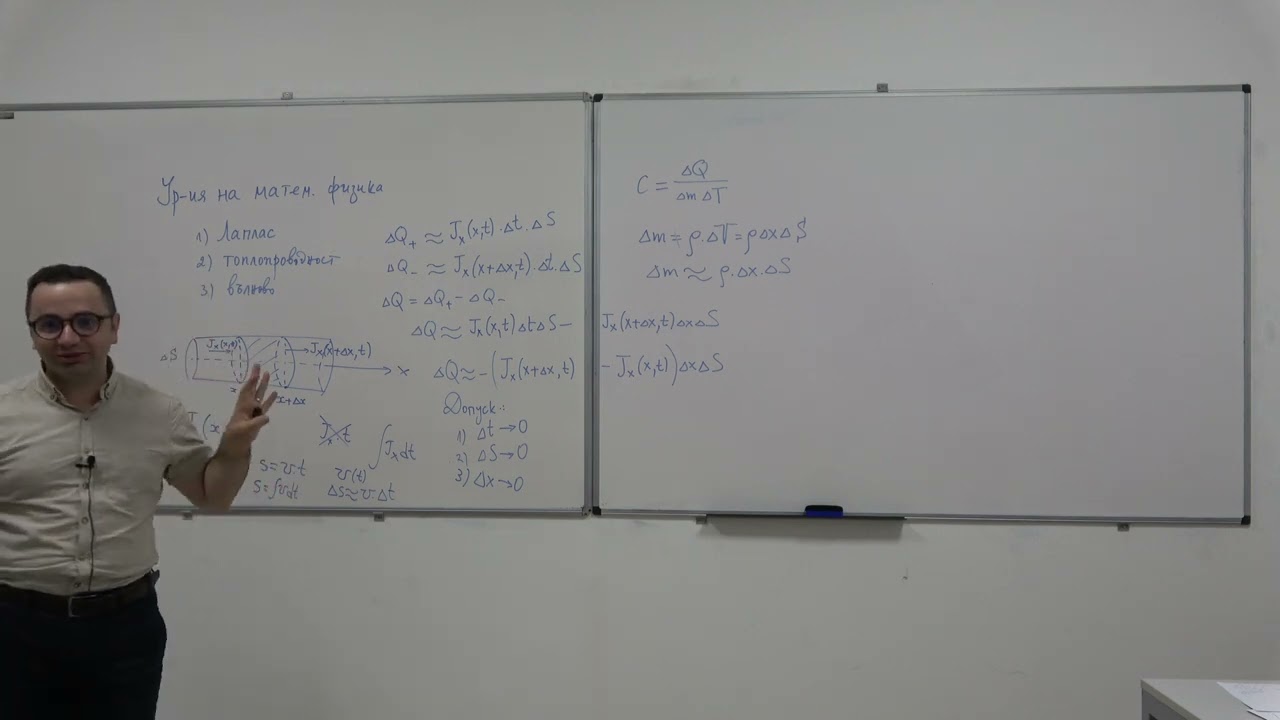 Ур-ия на матем. физика
1) Лаплас
2) топлопроводност
3) вълново
ΔQ₊ ≈ Jₓ(x,t).Δt.ΔS
ΔQ₋ ≈ Jₓ(x+Δx,t).Δt.ΔS
ΔQ = ΔQ₊ - ΔQ₋
ΔQ ≈ Jₓ(x,t)ΔtΔS - Jₓ(x+Δx,t)ΔxΔS
ΔQ ≈ -(Jₓ(x+Δx,t) - Jₓ(x,t))ΔxΔS
ΔS Jₓ(x,t) Jₓ(x+Δx,t) x
x x+Δx
J(x,
Jₓ t
∫Jₓdt
S=vt v(t)
S=∫vdt ΔS≈vΔt
Допуск.:
1) Δt→0
2) ΔS→0
3) Δx→0
C = ΔQ / ΔmΔT
Δm = ρ.ΔV = ρΔxΔS
Δm ≈ ρ.Δx.ΔS